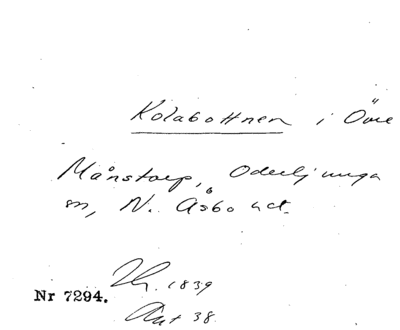 Kolabottnen i Övre
Månstorp, Oderljunga
sn, N. Åsbo hd.
Nr 7294. 1839
Ant 38.